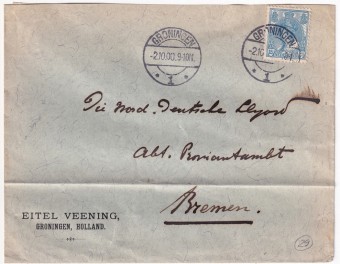 GRONINGEN
-2.10.00.9-10V.
1
GRONINGEN
Die Nord. Deutsche Lloyd
Abt. Proviantambt
Bremen.
EITEL VEENING,
GRONINGEN, HOLLAND.
29